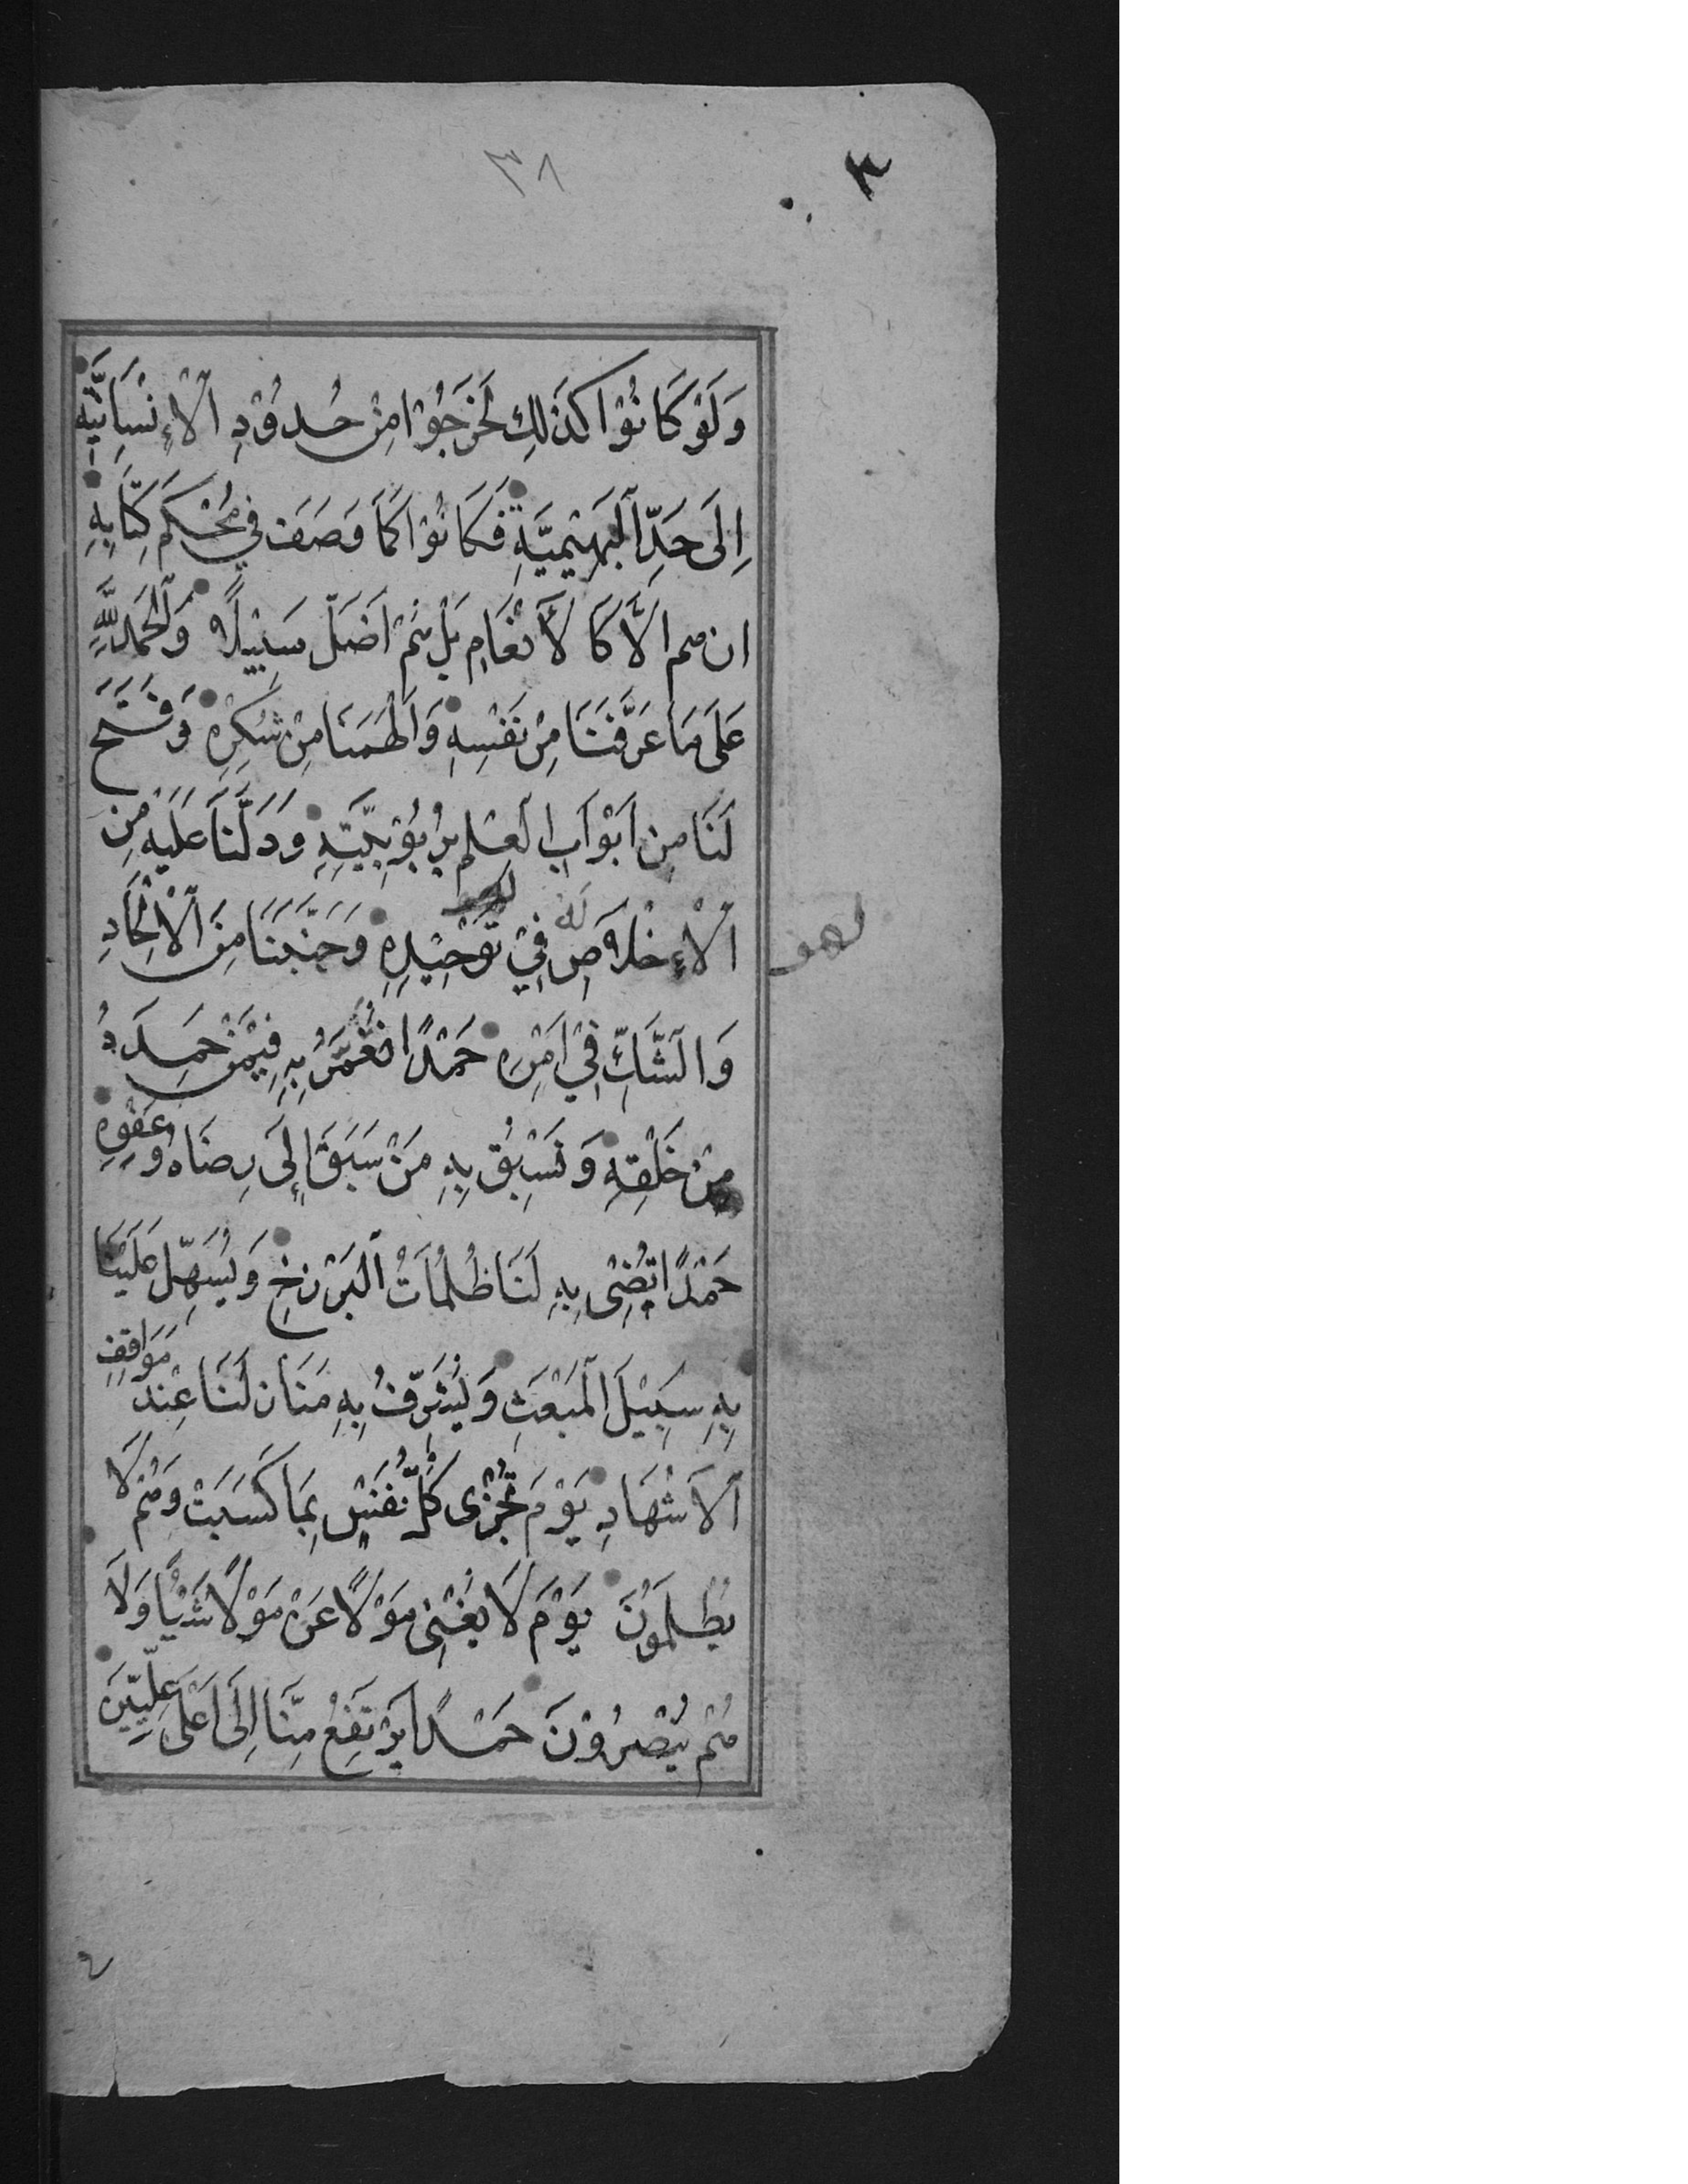 ٣٨
وَلَوْ كَانُوْا كَذٰلِكَ لَخَرَجُوْا مِنْ حُدُوْدِ الْاِنْسَانِيَّةِ
اِلَى حَدِّ الْبَهِيْمِيَّةِ فَكَانُوْا كَمَا وَصَفَ فِي مُحْكَمِ كِتَابِهِ
ان هم اِلَّا كَالْاَنْعَامِ بَلْ هُمْ اَضَلُّ سَبِيْلًا وَالْحَمْدُ لِلّٰهِ
عَلَى مَا عَرَّفَنَا مِنْ نَفْسِهِ وَاَلْهَمَنَا مِنْ شُكْرِهِ وَفَتَحَ
لَنَا مِن اَبْوَابِ الْعِلْمِ بِرُبُوْبِيَّتِهِ وَدَلَّنَا عَلَيْهِ مِنَ
الْاِخْلَاصِ لَهُ فِيْ تَوْحِيْدِهِ وَجَنَّبَنَا مِنَ الْاِلْحَادِ
وَالشَّكِّ فِيْ اَمْرِهِ حَمْدًا نُعَمَّرُ بِهِ فِيْمَنْ حَمِدَهُ
مِنْ خَلْقِهِ وَنَسْبِقُ بِهِ مَنْ سَبَقَ اِلَى رِضَاهُ وَعَفْوِهِ
حَمْدًا يُضِىْ بِهِ لَنَا ظُلُمَاتُ الْبَرْزَخِ وَيُسَهِّلُ عَلَيْنَا
بِهِ سَبِيْلَ الْمَبْعَثِ وَيُشَرِّفُ بِهِ مَنَازِلَنَا عِنْدَ مَوَاقِفِ
الْاَشْهَادِ يَوْمَ تُجْزٰى كُلُّ نَفْسٍ بِمَا كَسَبَتْ وَهُمْ لَا
يُظْلَمُوْنَ يَوْمَ لَا يُغْنِىْ مَوْلًا عَنْ مَوْلًا شَيْئًا وَلَا
هُمْ يُنْصَرُوْنَ حَمْدًا يَرْتَفِعُ مِنَّا اِلَى اَعْلَى عِلِّيِّيْنَ